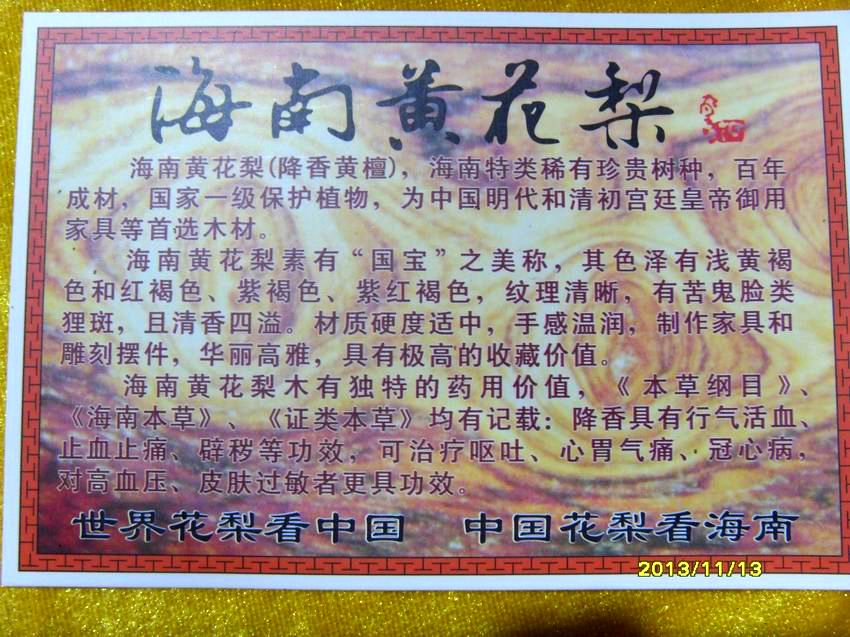 海南黄花梨
海南黄花梨(降香黄檀)，海南特类稀有珍贵树种，百年
成材，国家一级保护植物，为中国明代和清初宫廷皇帝御用
家具等首选木材。
海南黄花梨素有“国宝”之美称，其色泽有浅黄褐
色和红褐色、紫褐色、紫红褐色，纹理清晰，有苦鬼脸类
狸斑，且清香四溢。材质硬度适中，手感温润，制作家具和
雕刻摆件，华丽高雅，具有极高的收藏价值。
海南黄花梨木有独特的药用价值，《本草纲目》、
《海南本草》、《证类本草》均有记载：降香具有行气活血、
止血止痛、辟秽等功效，可治疗呕吐、心胃气痛、冠心病，
对高血压、皮肤过敏者更具功效。
世界花梨看中国 中国花梨看海南
2013/11/13